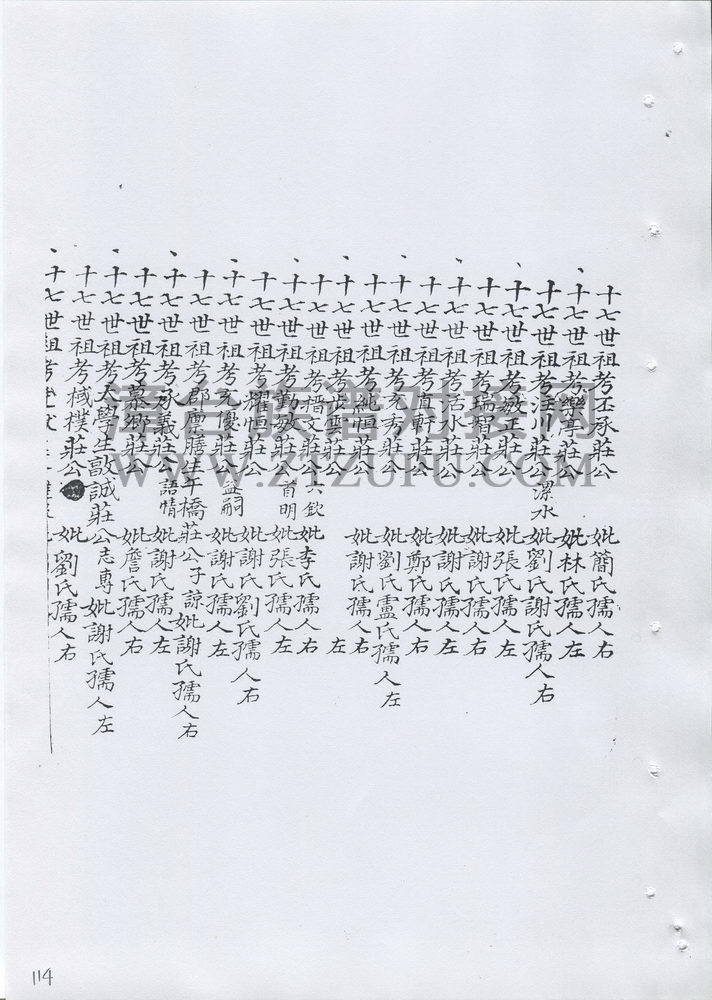 十七世祖考丕承莊公 妣簡氏孺人右
十七世祖考樂亭莊公 妣林氏孺人左
十七世祖考注川莊公潔水 妣劉氏謝氏孺人右
十七世祖考敏正莊公 妣張氏孺人左
十七世祖考瑞智莊公 妣謝氏孺人右
十七世祖考治水莊公 妣謝氏孺人左
十七世祖考直軒莊公 妣鄭氏孺人右
十七世祖考充秀莊公 妣劉氏盧氏孺人左
十七世祖考純恒莊公 妣謝氏孺人右
十七世祖考 莊公 左
十七世祖考搢文莊公六欽 妣李氏孺人右
十七世祖考勤敏莊公首明 妣張氏孺人左
十七世祖考耀恒莊公 妣謝氏劉氏孺人右
十七世祖考元優莊公益嗣 妣謝氏孺人左
十七世祖考郡廩膳生平橋莊公子諒 妣謝氏孺人右
十七世祖考承義莊公語情 妣謝氏孺人左
十七世祖考慕鄉莊公 妣詹氏孺人右
十七世祖考太學生敦誠莊公志專 妣謝氏孺人左
十七世祖考棫樸莊公 妣劉氏孺人右
十七世祖考
漳台族谱对接网
WWW.ZTZUPU.COM
114